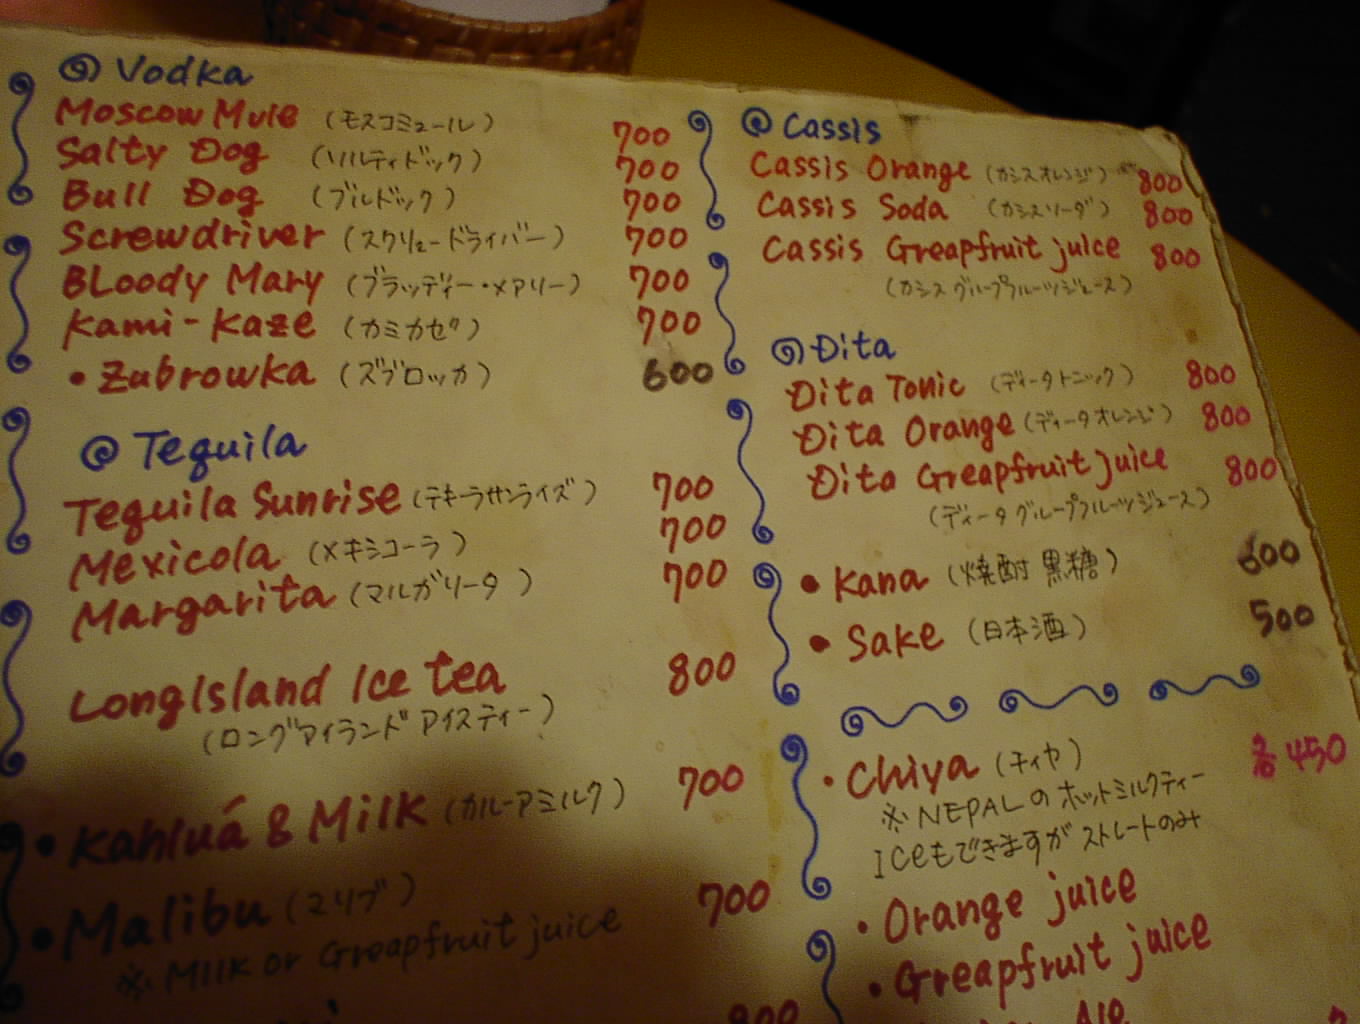 Vodka
Moscow Mule (モスコミュール) 700
Salty Dog (ソルティドック) 700
Bull Dog (ブルドック) 700
Screwdriver (スクリュードライバー) 700
BLoody Mary (ブラッディー・メアリー) 700
Kami-Kaze (カミカゼ) 700
• Zubrowka (ズブロッカ) 600
@ Tequila
Tequila Sunrise (テキーラサンライズ) 700
Mexicola (メキシコーラ) 700
Margarita (マルガリータ) 700
Long Island Ice tea 800
(ロングアイランドアイスティー)
• Kahluá & Milk (カルーアミルク) 700
• Malibu (マリブ) 700
※ Milk or Greapfruit juice
800
@ Cassis
Cassis Orange (カシスオレンジ) 800
Cassis Soda (カシスソーダ) 800
Cassis Greapfruit juice 800
(カシスグループフルーツジュース)
Dita
Dita Tonic (ディータトニック) 800
Dita Orange (ディータオレンジ) 800
Dita Greapfruit juice 800
(ディータグループフルーツジュース)
• Kana (焼酎 黒糖) 600
• Sake (日本酒) 500
• Chiya (チィヤ) 各450
※ NEPALのホットミルクティー
Iceもできますがストレートのみ
• Orange juice
• Greapfruit juice
Ale